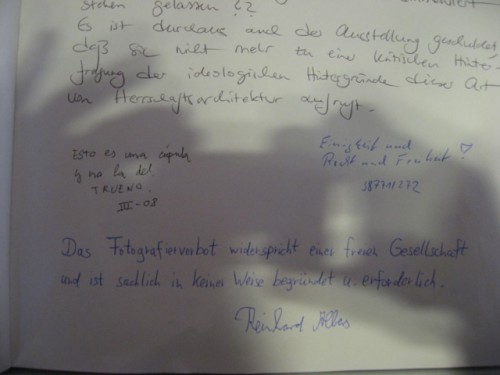 stehen gelassen ??
Es ist durchaus auch der Ausstellung geschuldet,
daß sie nicht mehr zu einer kritischen Hinter-
fragung der ideologischen Hintergründe dieser Art
von Herrschaftsarchitektur aufruft.
Esto es una cúpula
y no la del
TRUENO.
III-08
Einigkeit und
Recht und Freiheit !
Das Fotografierverbot widerspricht einer freien Gesellschaft
und ist sachlich in keiner Weise begründet u. erforderlich.
Reinhard Albers